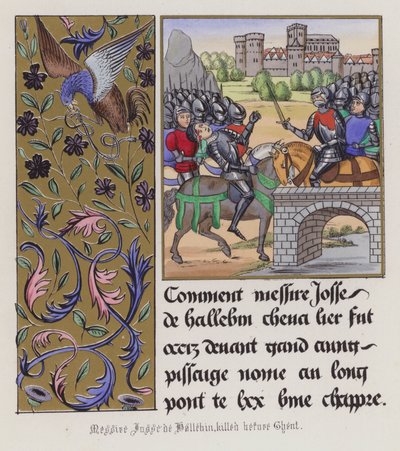 Comment messire Josse
de hallebin cheualier fut
occiz deuant gand aung
passaige nome au long
pont le lxx bme chappre.
Messire Josse de Hallebin, killed before Ghent.